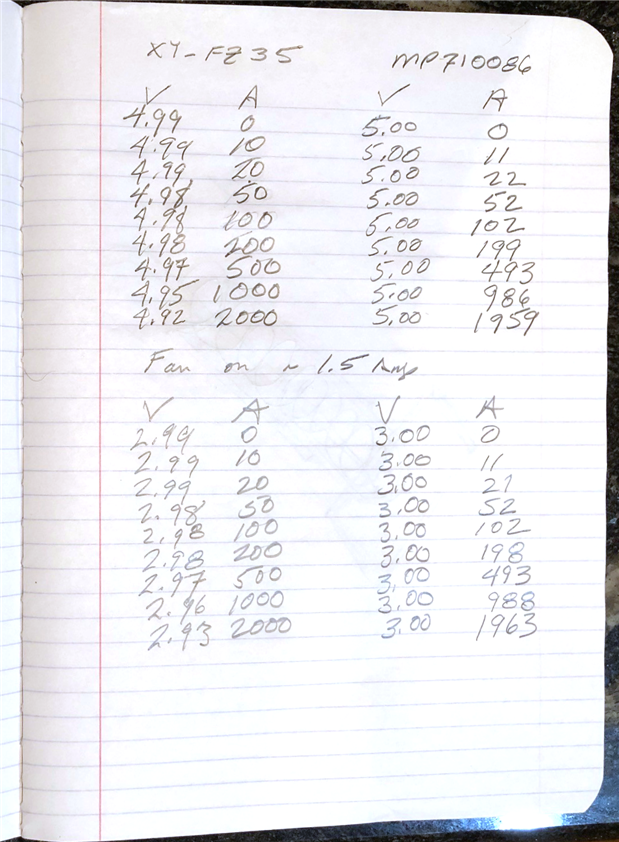 XY-FZ35 MP710086
V A V A
4.99 0 5.00 0
4.99 10 5.00 11
4.99 20 5.00 22
4.98 50 5.00 52
4.98 100 5.00 102
4.98 200 5.00 199
4.97 500 5.00 493
4.95 1000 5.00 986
4.92 2000 5.00 1959
Fan on ~ 1.5 Amp
V A V A
2.99 0 3.00 0
2.99 10 3.00 11
2.99 20 3.00 21
2.98 50 3.00 52
2.98 100 3.00 102
2.98 200 3.00 198
2.97 500 3.00 493
2.96 1000 3.00 988
2.93 2000 3.00 1963